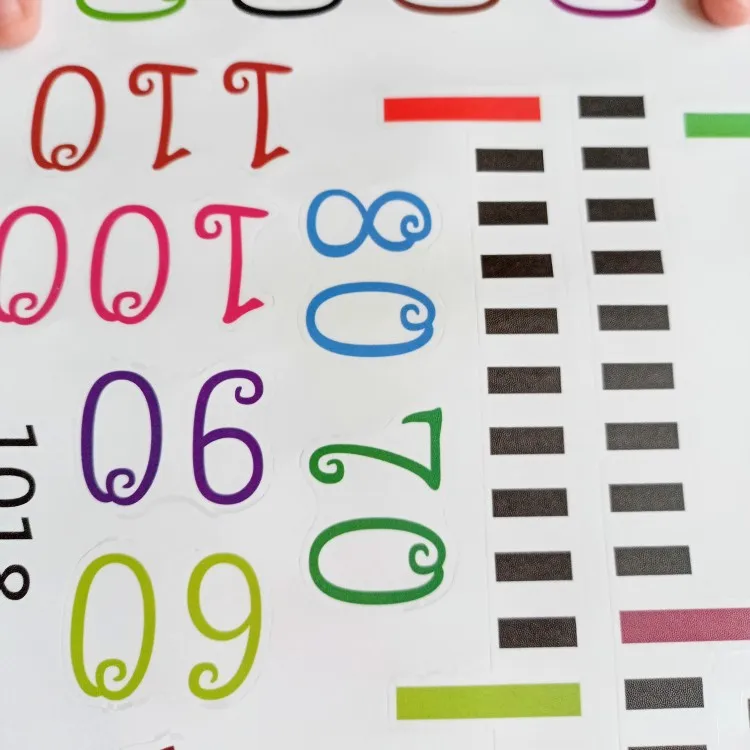 110
100
80
90
70
60
1018